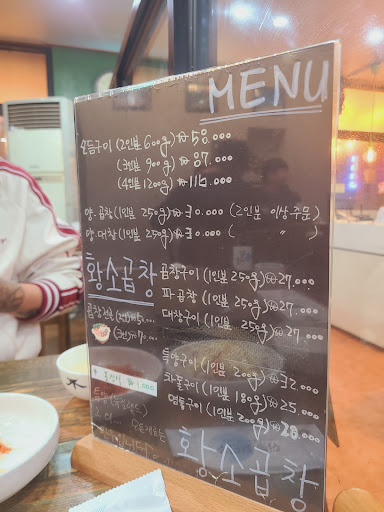 MENU
모듬구이 (2인분 600g) ₩58.000
(3인분 900g) ₩87.000
(4인분 1200g) ₩116.000
양.곱창 (1인분 250g) ₩30.000 (2인분 이상 주문)
양.대창 (1인분 250g) ₩30.000 ( 〃 )
황소곱창
곱창구이 (1인분 250g) ₩27.000
파곱창 (1인분 250g) ₩27.000
대창구이 (1인분 250g) ₩27.000
곱창전골
특양구이 (1인분 200g) ₩32.000
차돌구이 (1인분 180g) ₩25.000
염통구이 (1인분 200g) ₩20.000
₩1.000
황소곱창